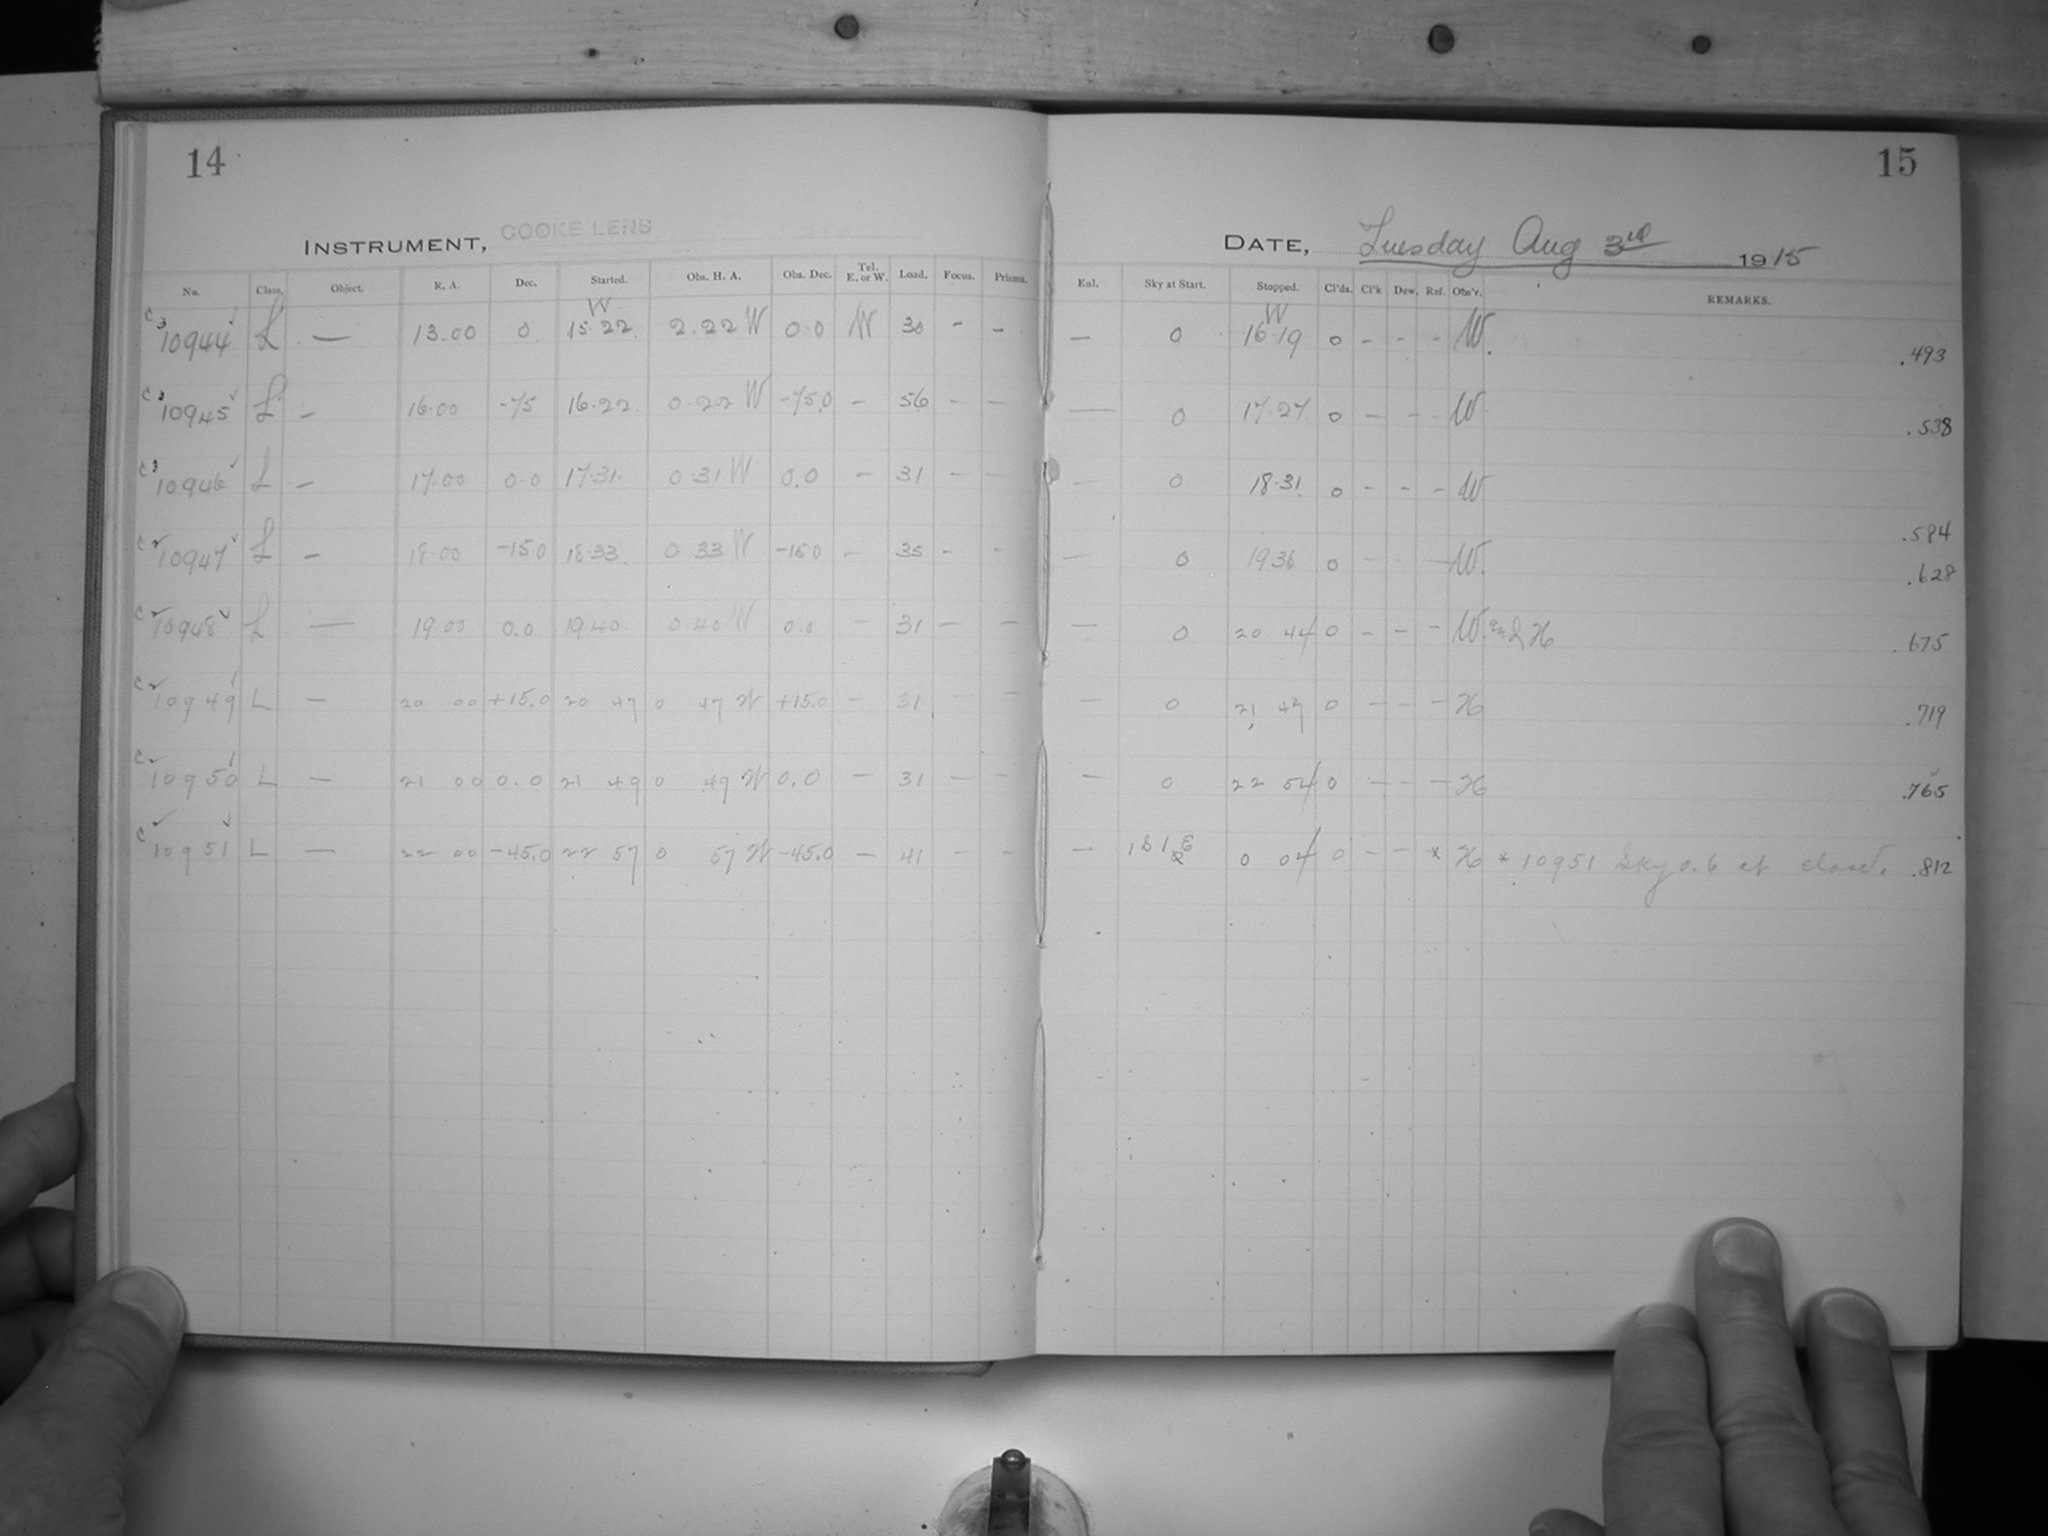 14
15
INSTRUMENT, COOKE LENS
DATE, Tuesday Aug 3rd 1915
No. Class. Object. R. A. Dec. Started. Obs. H. A. Obs. Dec. Tel. E. or W. Load. Focus. Prisms. Enl. Sky at Start. Stopped. Cl'ds. Cl'k Dew. Ref. Obs'r. REMARKS.
W W
C3 10944 L — 13.00 0 15.22 2.22 W 0.0 W 30 - - — 0 16.19 0 - - - W. .493
C3 10945 L - 16.00 -75 16.22 0.22 W -75.0 - 56 - - — 0 17.27 0 - - - W .538
C3 10946 L - 17.00 0.0 17.31 0 31 W 0.0 - 31 - - — 0 18.31 0 - - - W .584
C 10947 L - 18.00 -15.0 18.33 0 33 W -15.0 - 35 - - — 0 19 36 0 - - W. .628
C 10948 L — 19.00 0.0 19.40 0.40 W 0.0 - 31 - - — 0 20 44 0 - - - W. and H .675
C 10949 L — 20 00 +15.0 20 47 0 47 W +15.0 - 31 - - — 0 21 47 0 - - - H .719
C 10950 L — 21 00 0.0 21 49 0 49 W 0.0 - 31 - - — 0 22 54 0 - - - H .765
C 10951 L — 22 00 -45.0 22 57 0 57 W -45.0 - 41 - - — 0 04 0 - - * H * 10951 Sky 0.6 at close. .812